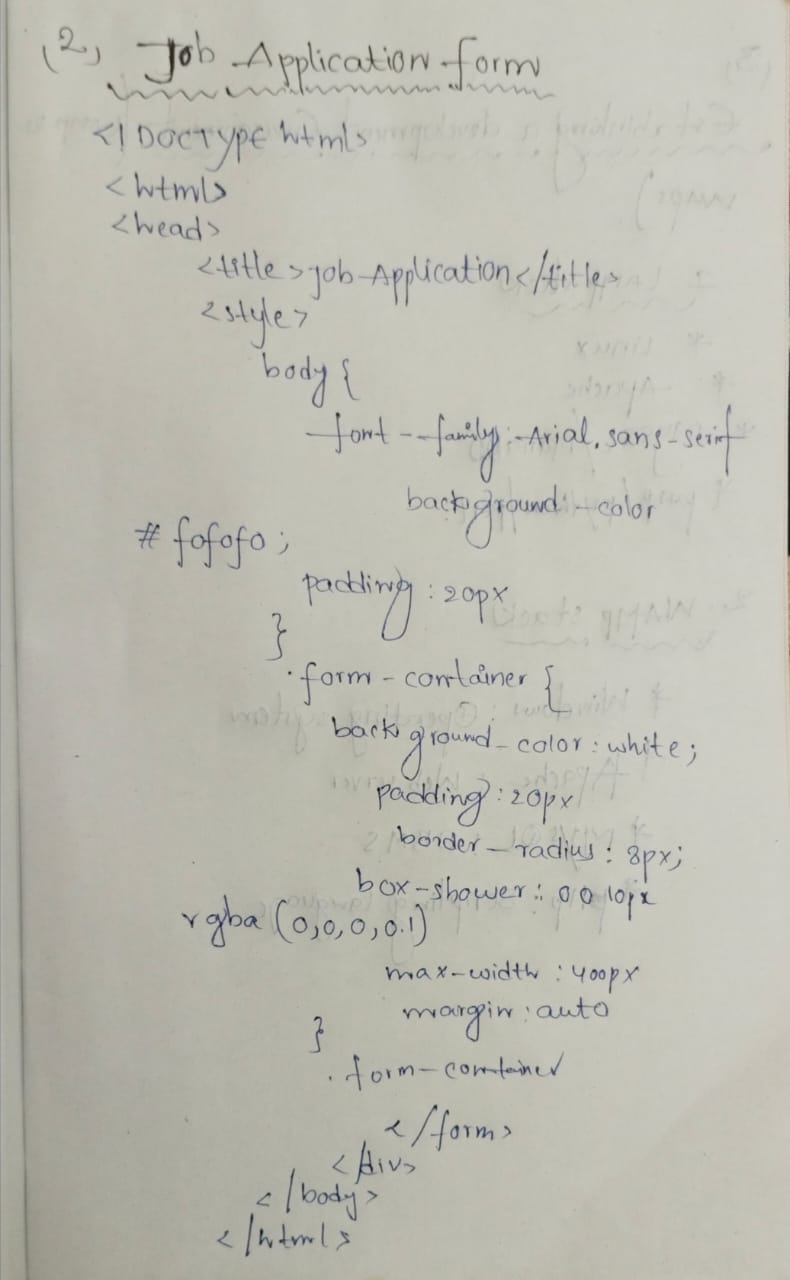 (2) Job Application form
<! DOCTYPE html>
<html>
<head>
<title>job Application</title>
<style>
body {
font-family: Arial, sans-serif
background-color
# fofofo ;
padding : 20px
}
.form-container {
background-color : white;
padding : 20px
border-radius : 8px;
box-shower : 0 0 10px
rgba (0,0,0,0.1)
max-width : 400px
margin : auto
}
.form-container
</form>
</div>
</body>
</html>